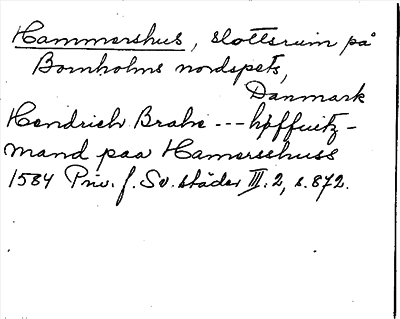 Hammershus, slottsruin på
Bornholms nordspets,
Danmark
Hendrich Brahe --- høffuitz-
mand paa Hamersshuss
1584 Priv. f. Sv. städer III. 2, s. 872.